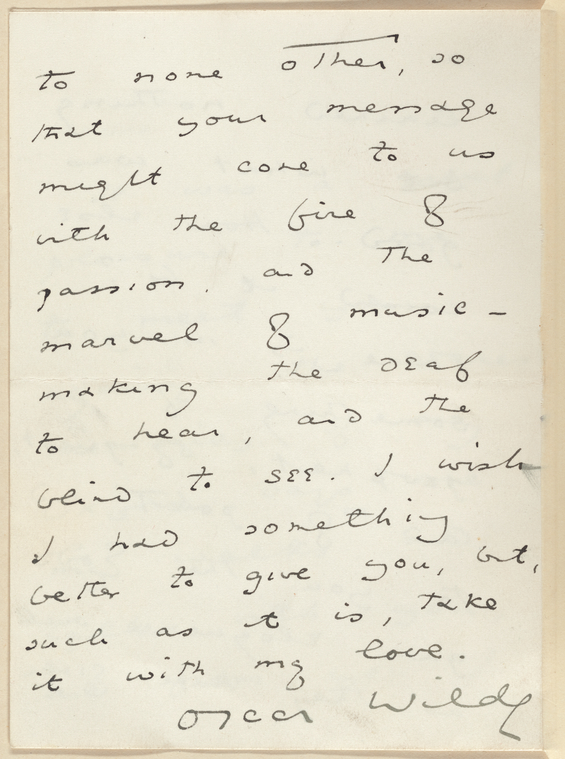 to none other, so
that your message
might come to us
with the fire of
passion, and the
marvel of music -
making the deaf
to hear, and the
blind to see. I wish
I had something
better to give you, but,
such as it is, take
it with my love.
Oscar Wilde